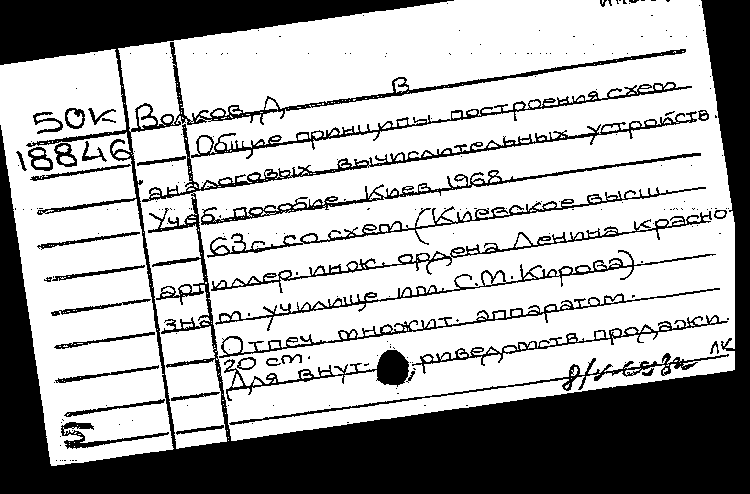 В
50К Волков, А,
18846 Общие принципы построения схем
аналоговых вычислительных устройств.
Учеб. пособие. Киев, 1968.
63с. со схем. (Киевское высш.
артиллер. инж. ордена Ленина Красно-
знам. училище им. С.М. Кирова).
Отпеч. множит. аппаратом.
20 см.
Для внутриведомств. продажи.
5 ЛК